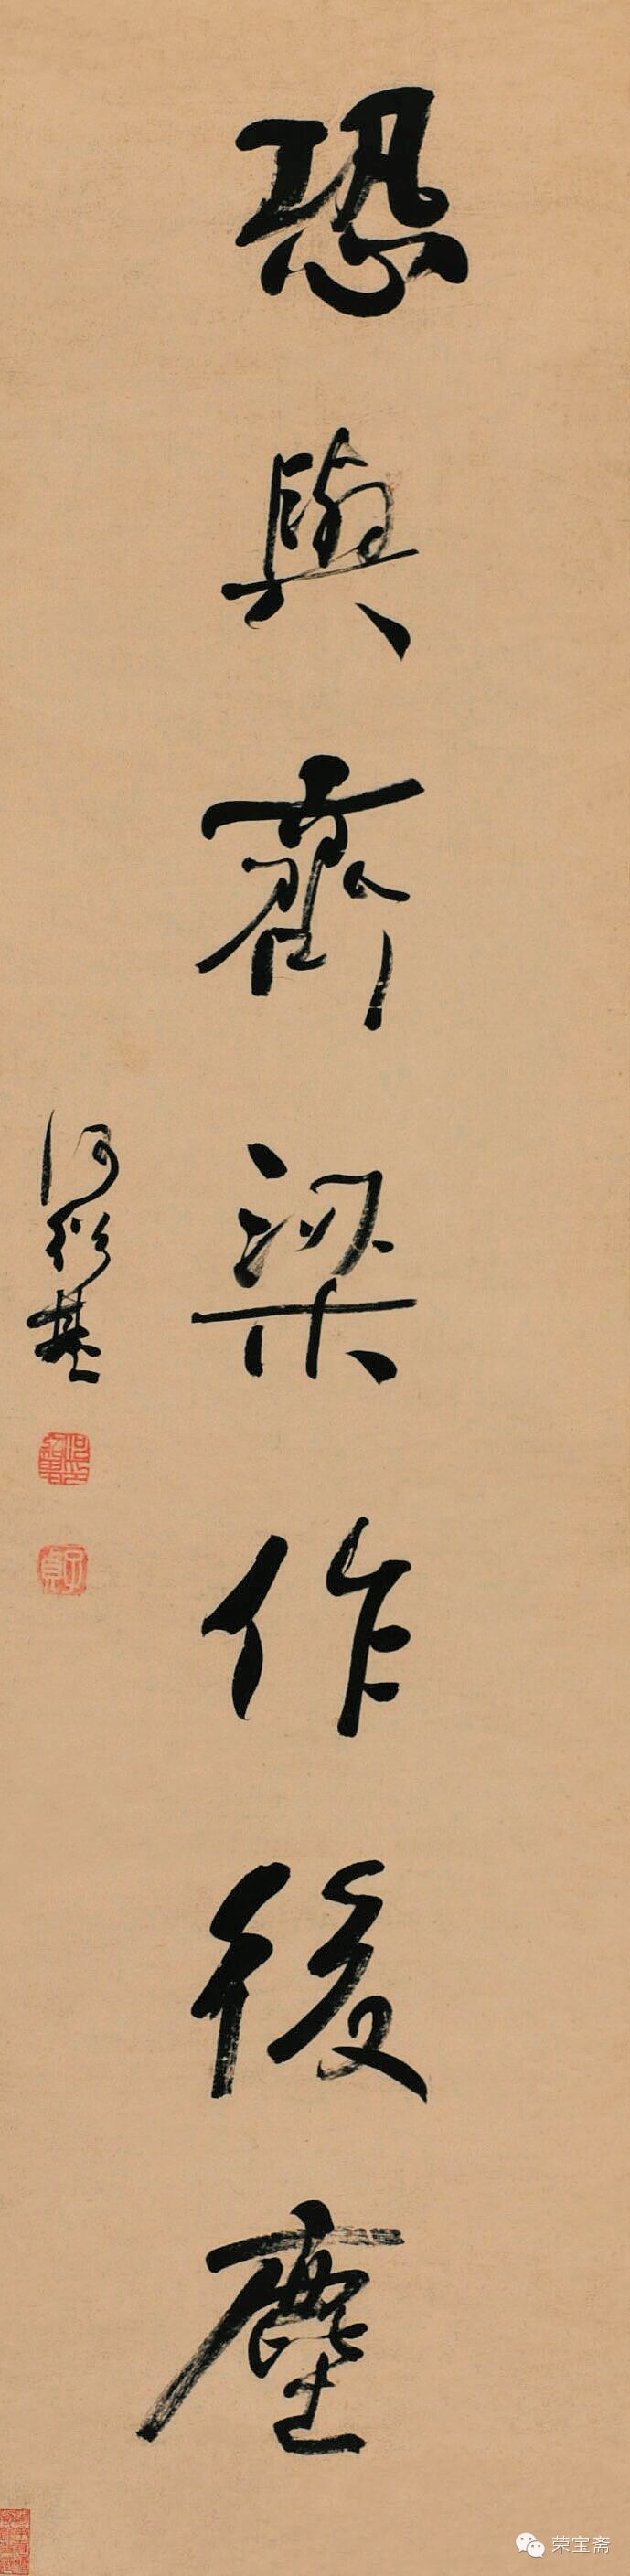 恐與齊梁作後塵
何紹基
子貞
荣宝斋